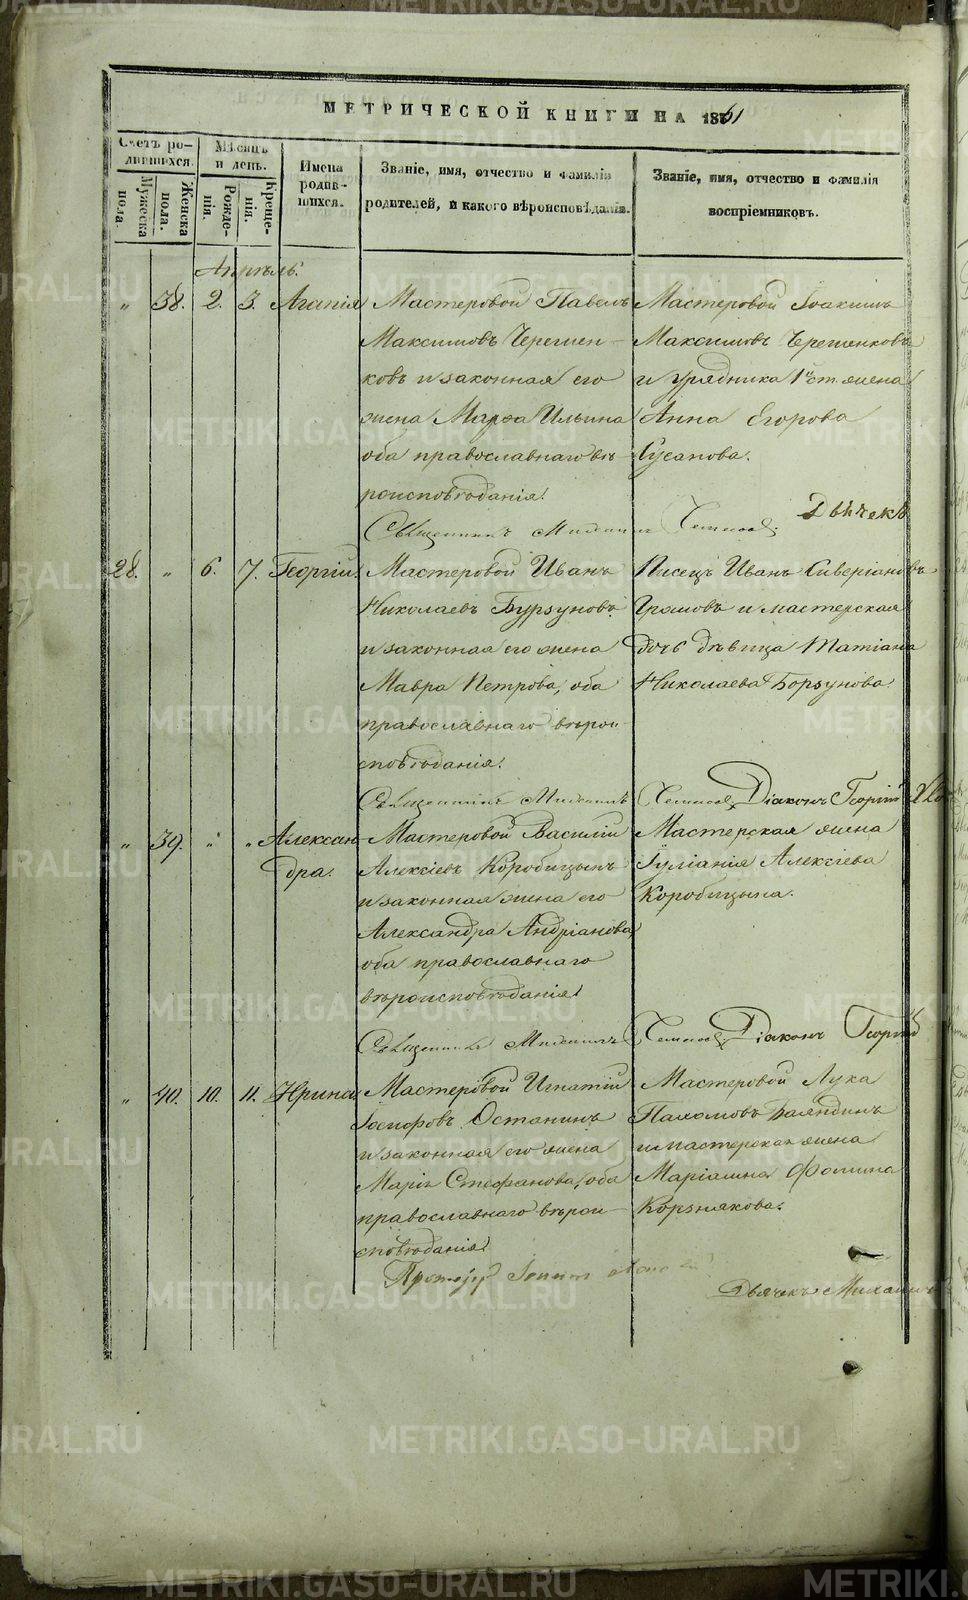 МЕТРИЧЕСКОЙ КНИГИ НА 1861
Счетъ ро-
дившихся.
Мужеска
пола.
Женска
пола.
Мѣсяцъ
и день.
Рожде-
нія.
Креще-
нія.
Имена
родив-
шихся.
Званіе, имя, отчество и фамилія
родителей, и какого вѣроисповѣданія.
Званіе, имя, отчество и фамилія
воспріемниковъ.
Апрѣль.
„ 38. 2. 3. Агапія
Мастеровой Павелъ
Максимовъ Черемен-
ковъ и законная его
жена Марѳа Ильина
оба православнаго вѣ-
роисповѣданія.
Мастеровой Іоакимъ
Максимовъ Черетенковъ
и урядника 1й ст. жена
Анна Егорова
Сусанова.
Священникъ
Дьячекъ
28. „ 6. 7. Георгій.
Мастеровой Иванъ
Николаевъ Бурзуновъ
и законная его жена
Мавра Петрова, оба
православнаго вѣрои-
сповѣданія.
Писецъ Иванъ Сиверіановъ
Громовъ и мастерская
дочь дѣвица Татіана
Николаева Борзунова.
Священникъ
Діаконъ Георгій
„ 39. „ „ Алексан
дра.
Мастеровой Василій
Алексіевъ Коробицынъ
и законная жена его
Александра Андріанова,
оба православнаго
вѣроисповѣданія.
Мастерская жена
Іуліанія Алексіева
Коробицына.
Священникъ
Діаконъ Георгій
„ 40. 10. 11. Ирина
Мастеровой Игнатій
Іосифовъ Останинъ
и законная его жена
Марія Стефанова, оба
православнаго вѣрои-
сповѣданія.
Мастеровой Лука
Пахомовъ Баяндинъ
и мастерская жена
Маріамна Фомина
Корзнякова.
Дьячекъ Михаилъ
METRIKI.GASO-URAL.RU